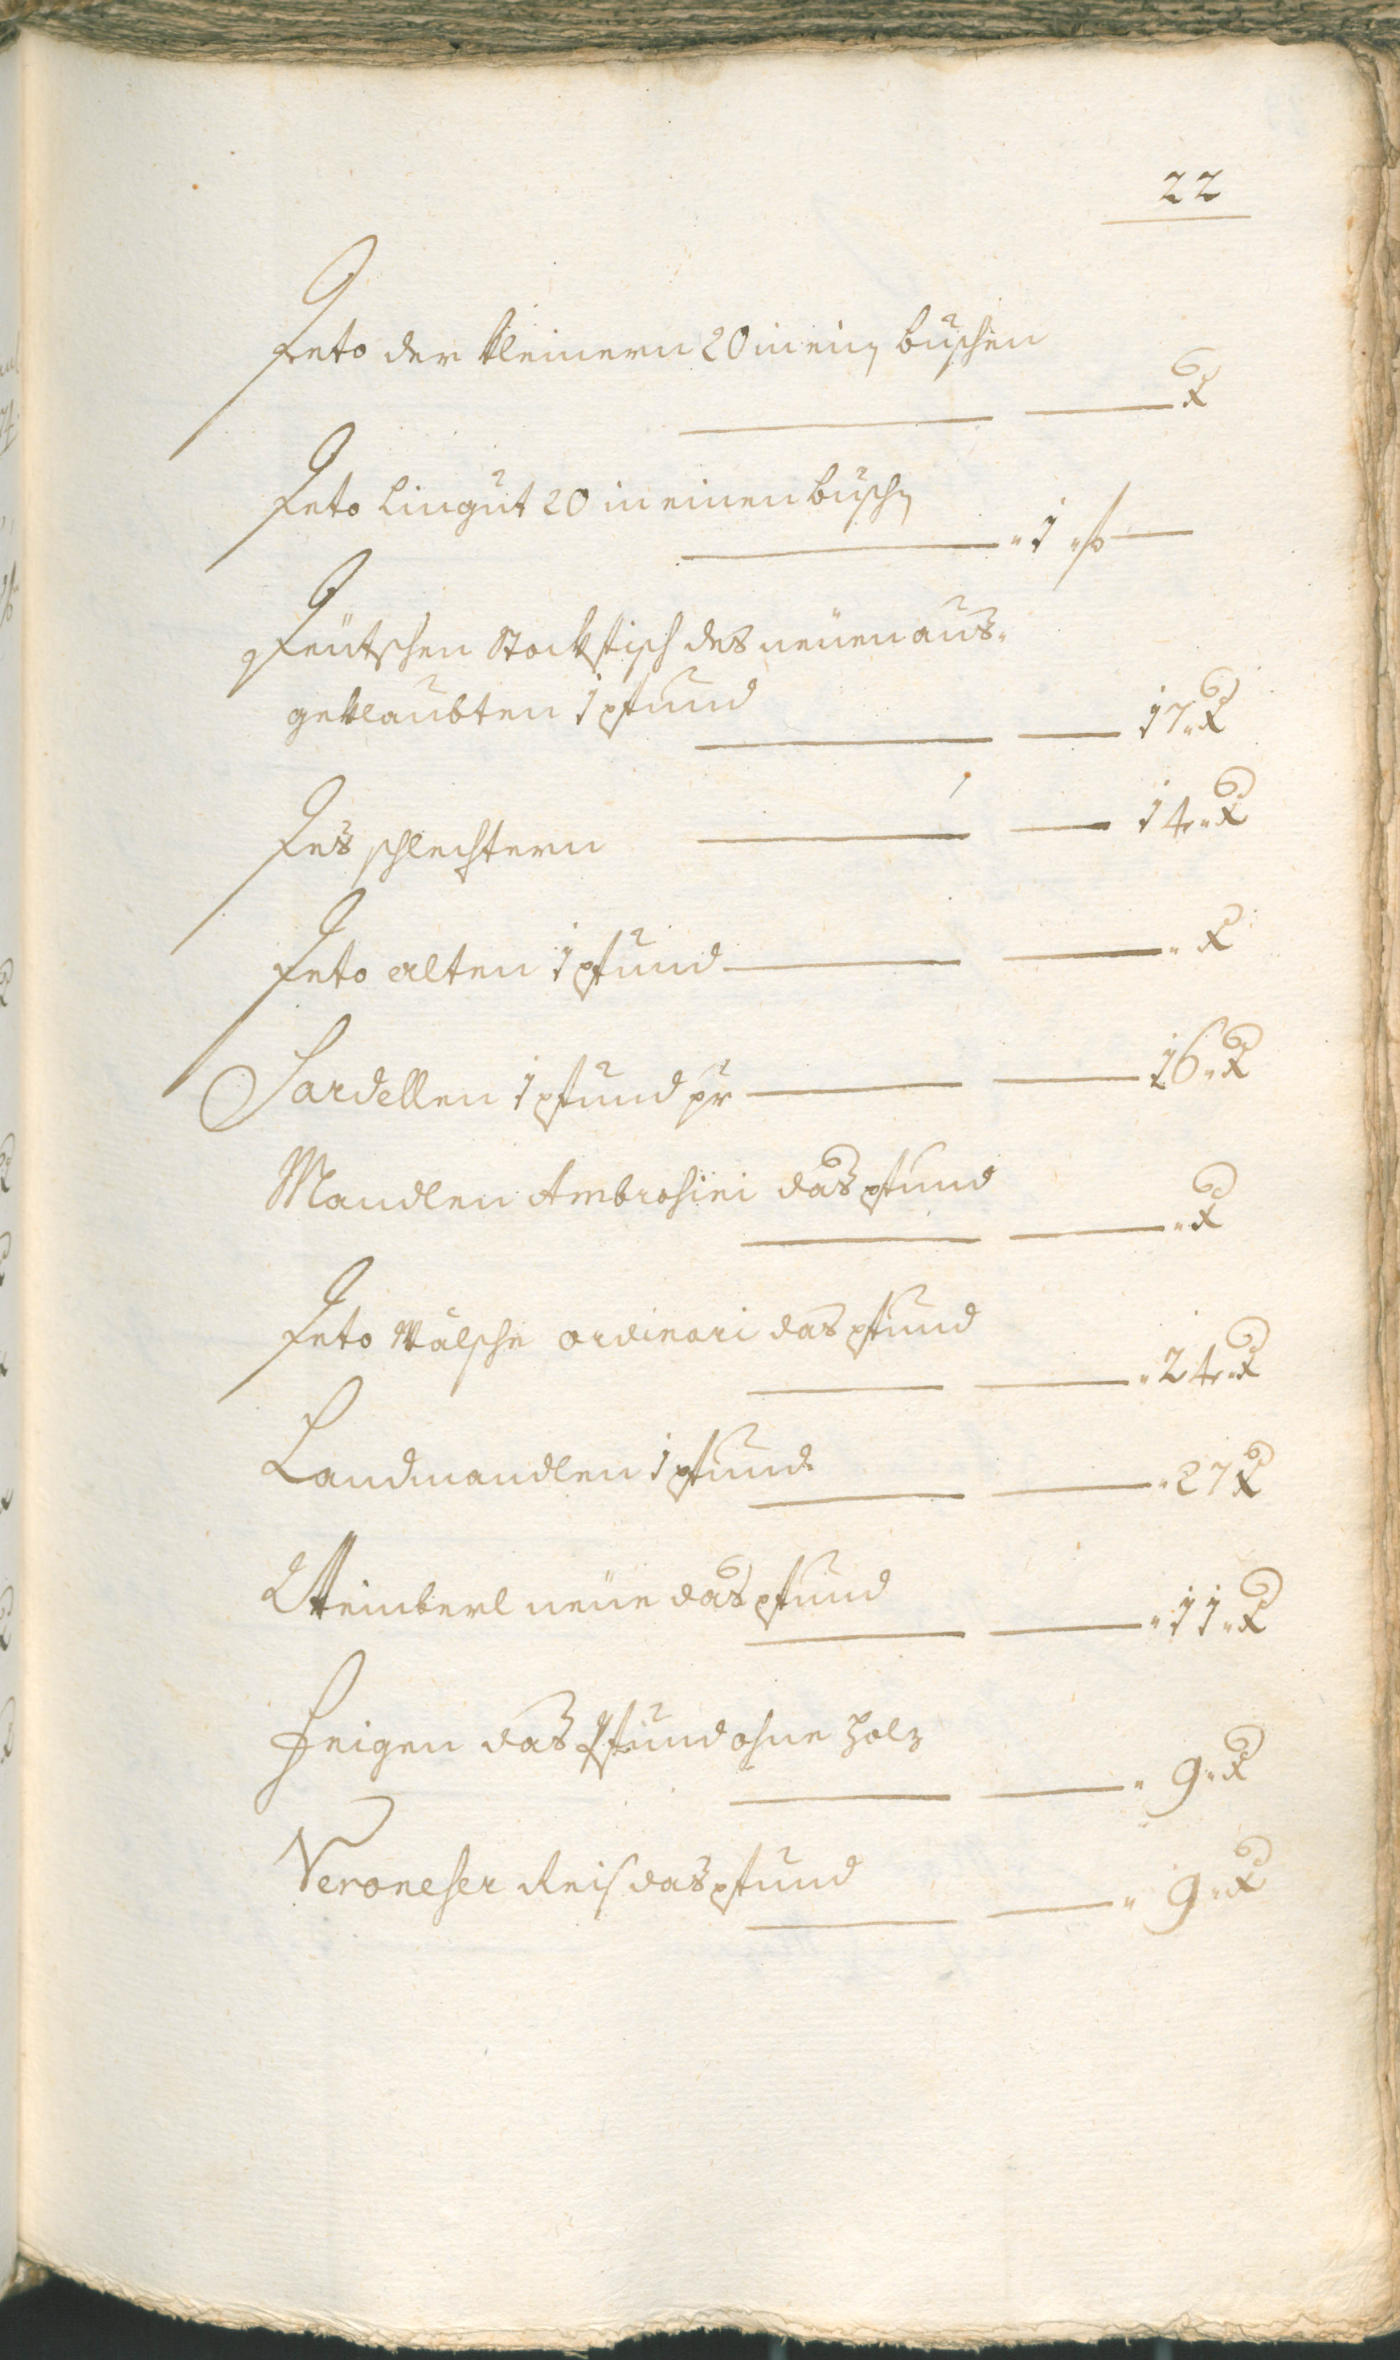 22
Deto der kleinern 20 in ein buschen
——— ——— x
Deto Lingut 20 in einen busch
——— " 1 " f ——
Deütschen Stockfisch des neüen aus-
geklaubten 1 pfund
——— ——— 17 " x
Des schlechtern ——— ——— 14 " x
Deto alten 1 pfund ——— ——— " x
Sardellen 1 pfund pr ——— ——— 16 " x
Mandlen Ambrosini das pfund
——— ——— " x
Deto Wälsche ordinari das pfund
——— ——— " 24 " x
Landmandlen 1 pfund
——— ——— " 27 x
Weinberl neüe das pfund
——— ——— " 11 " x
Feigen das Pfund ohne Holz
——— ——— " 9 " x
Veroneser Reis das pfund
——— ——— " 9 " x